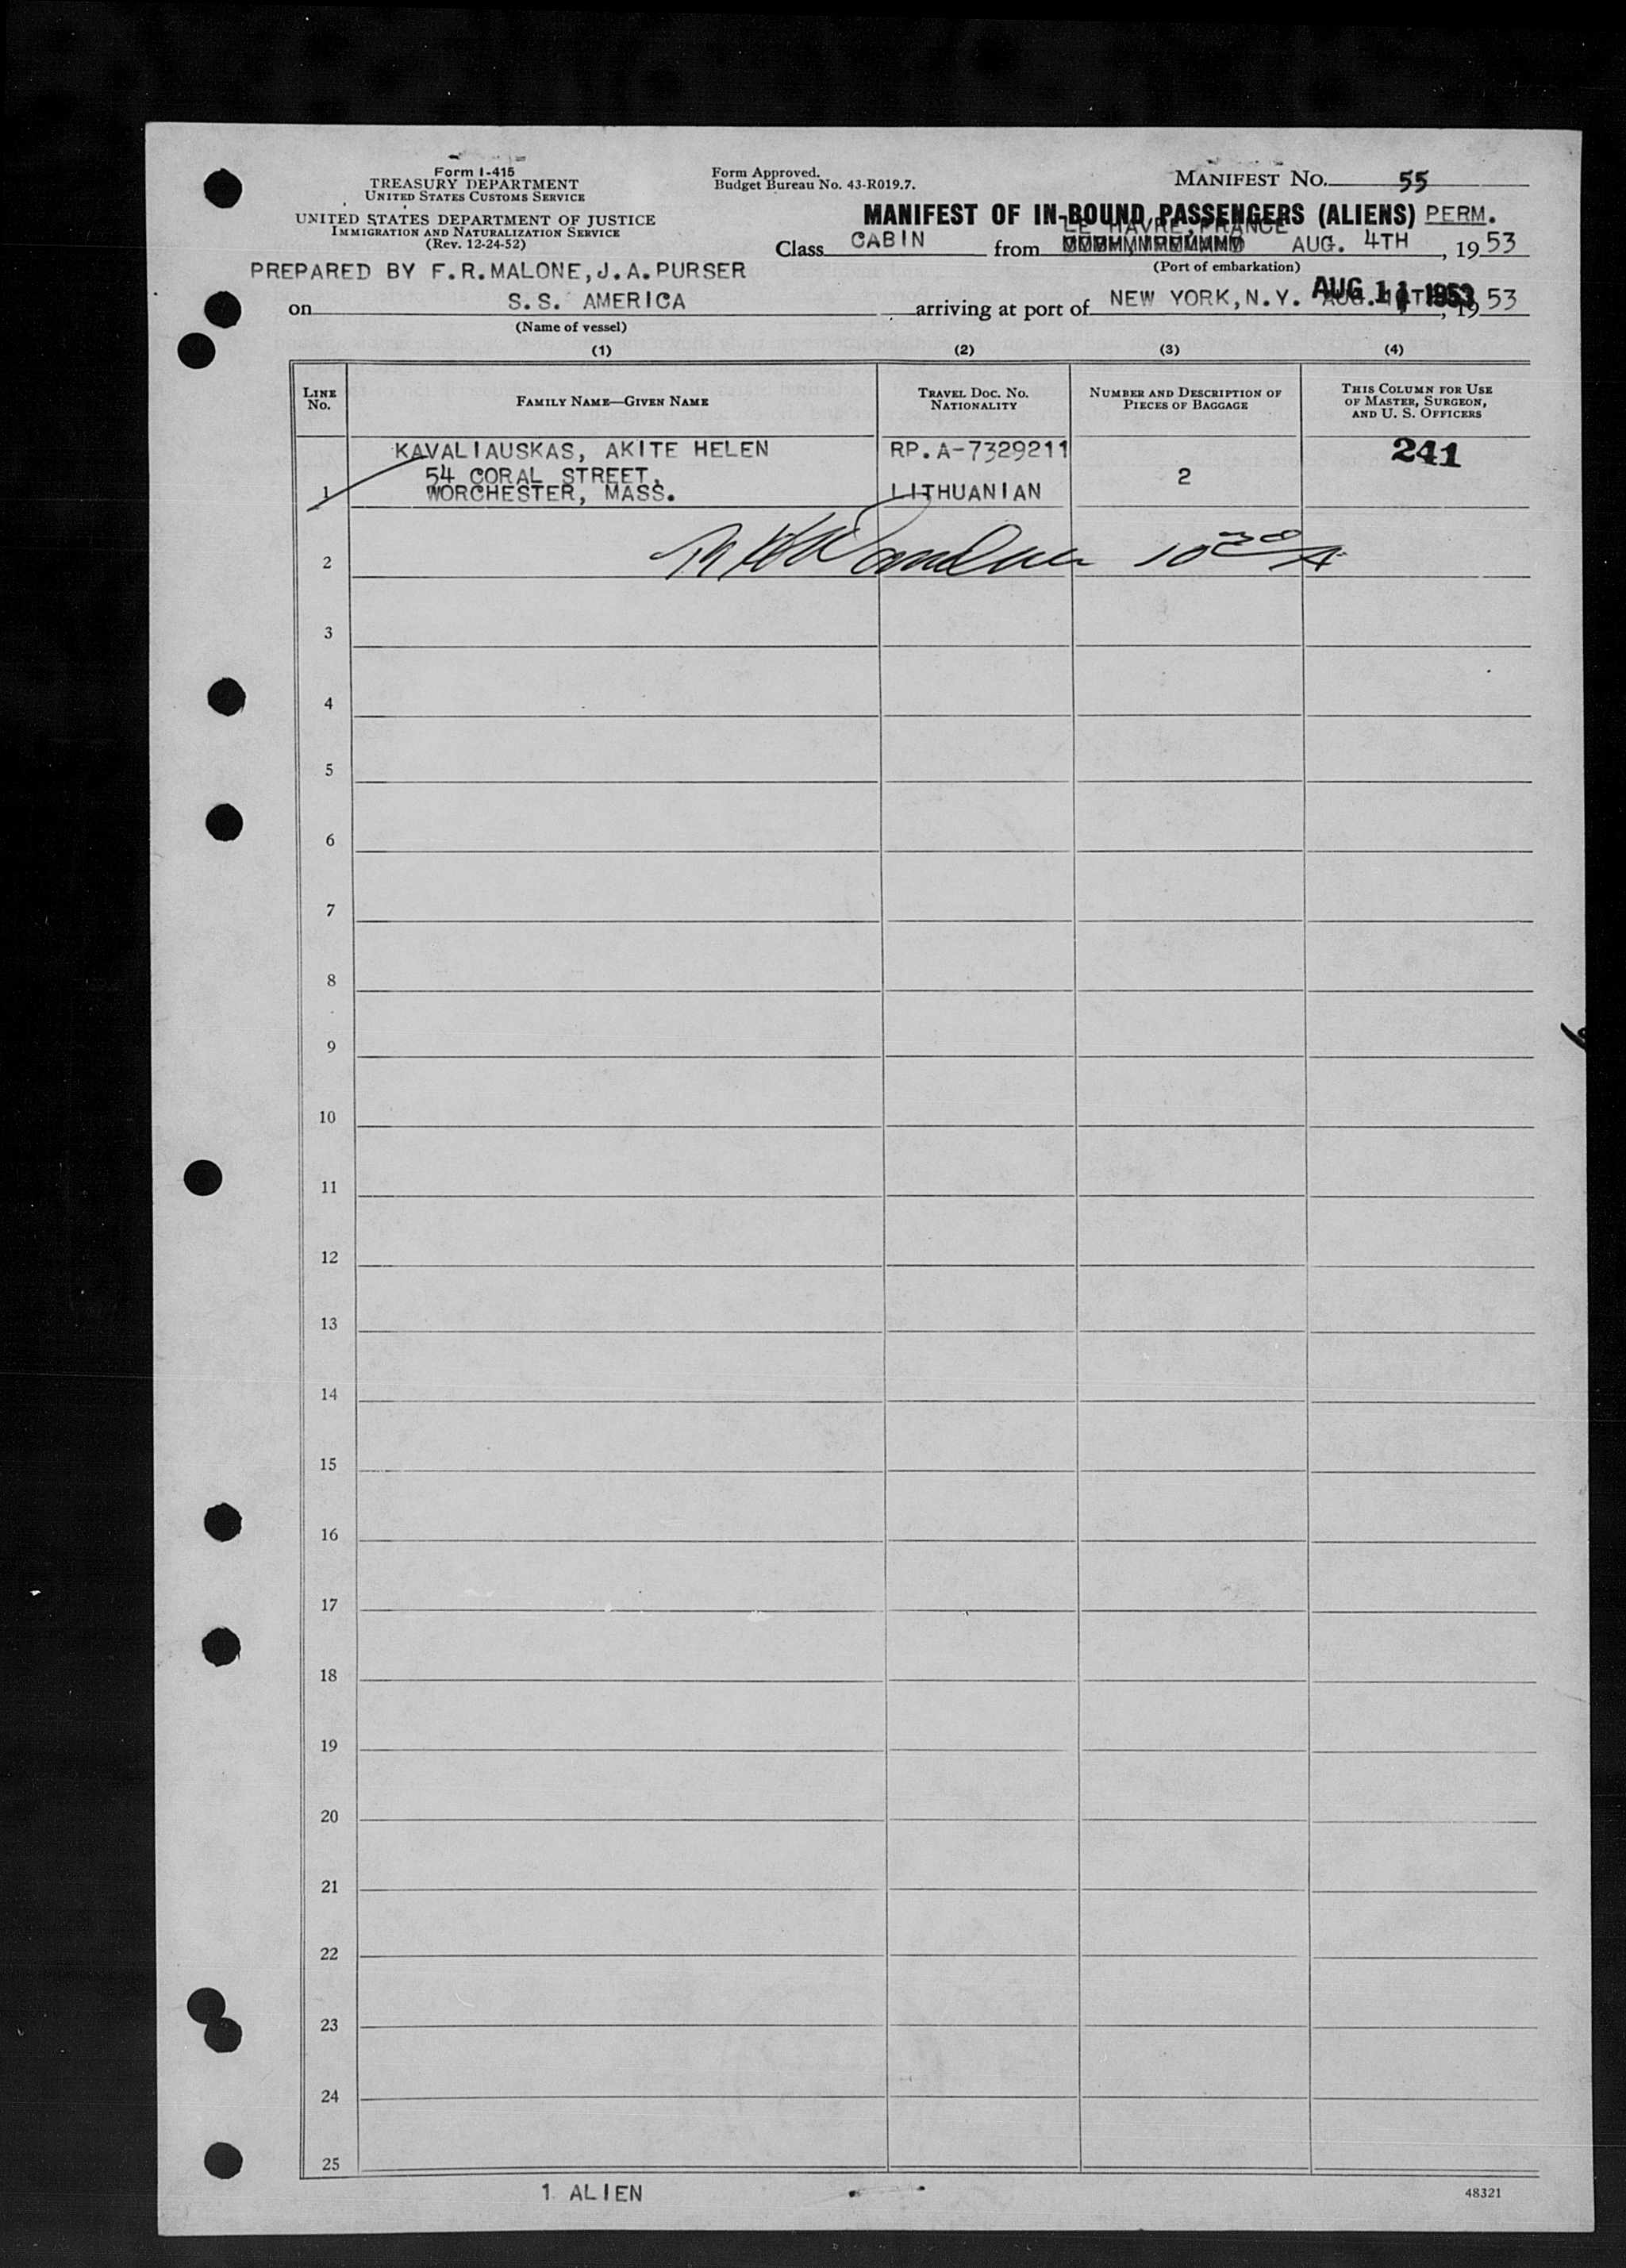 Form I-415
TREASURY DEPARTMENT
UNITED STATES CUSTOMS SERVICE
UNITED STATES DEPARTMENT OF JUSTICE
IMMIGRATION AND NATURALIZATION SERVICE
(Rev. 12-24-52)
Form Approved.
Budget Bureau No. 43-R019.7.
MANIFEST NO. 55
MANIFEST OF IN-BOUND PASSENGERS (ALIENS) PERM.
LE HAVRE, FRANCE
Class CABIN from AUG. 4TH, 1953
(Port of embarkation)
PREPARED BY F.R.MALONE,J.A.PURSER
on S.S. AMERICA arriving at port of NEW YORK,N.Y. AUG 11 1953, 1953
(Name of vessel)
(1) (2) (3) (4)
LINE No. FAMILY NAME—GIVEN NAME TRAVEL DOC. NO. NATIONALITY NUMBER AND DESCRIPTION OF PIECES OF BAGGAGE THIS COLUMN FOR USE OF MASTER, SURGEON, AND U. S. OFFICERS
KAVALIAUSKAS, AKITE HELEN RP.A-7329211 241
54 CORAL STREET, 2
1 WORCHESTER, MASS. LITHUANIAN
2 10 30 A
3
4
5
6
7
8
9
10
11
12
13
14
15
16
17
18
19
20
21
22
23
24
25
1 ALIEN 48321